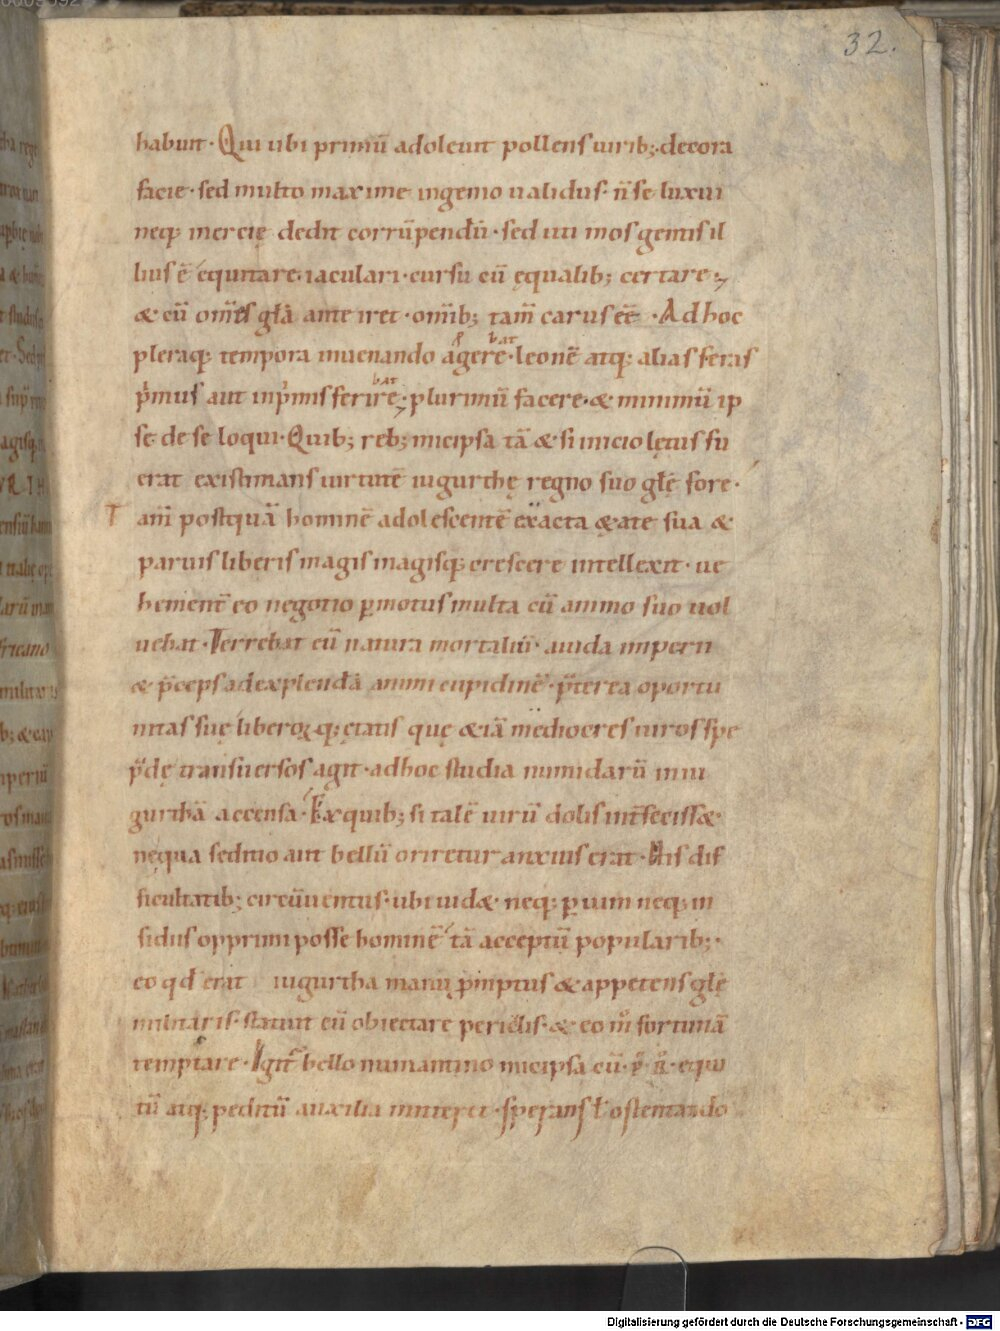 32.
habuit · Qui ubi primũ adoleuit pollens uirib; · decora
facie · sed multo maxime ingenio ualidus · ñ se luxui
neq; inercię dedit corrũpendũ · sed uti mos gentis il
lius ẽ equitare · iaculari · cursu cũ ęqualib; certare;
& cũ om̃es glã anteiret · om̃ib; tam̃ carus eẽ · Ad hoc
pleraq; tempora in uenando agere · leonẽ atq; alias feras
bat
primus aut inprimis ferire; plurimũ facere · & minimũ ip
bat
se de se loqui · Quib; reb; micipsa tã & si inicio lętus fu
erat existimans uirtutẽ iugurthę regno suo glę fore ·
Tam̃ postquã hominẽ adolescentẽ exacta ętate sua &
paruis liberis magis magisq; crescere intellexit · ue
hementẽ eo negotio p̱motus multa cũ animo suo uol
uebat · Terrebat eũ natura mortaliũ · auida imperii
& p̃ceps ad explendã animi cupidinẽ · p̃terea oportu
nitas suę liberoꝝq; ętatis quę &iã mediocres uiros spe
p̃dę transuersos agit · ad hoc studia numidarũ in iu
gurthã accensa · Ex quib; si talẽ uirũ dolis int̃fecisse&
nequa seditio aut bellũ oriretur anxius erat · His dif
ficultatib; circũuentus · ubi uid& neq; p̱ uim neq; in
sidiis opprimi posse hominẽ tã acceptũ popularib; ·
eo qđ erat iugurtha manu p̱mptus & appetens glę
militaris · statuit eũ obiectare periclis · & eo m̊ fortunã
temptare · Igit̃ bello numantino micipsa cũ · p̊ · r̊ · equi
tũ atq; peditũ auxilia mitteret · sperans ł ostentando
Digitalisierung gefördert durch die Deutsche Forschungsgemeinschaft - DFG